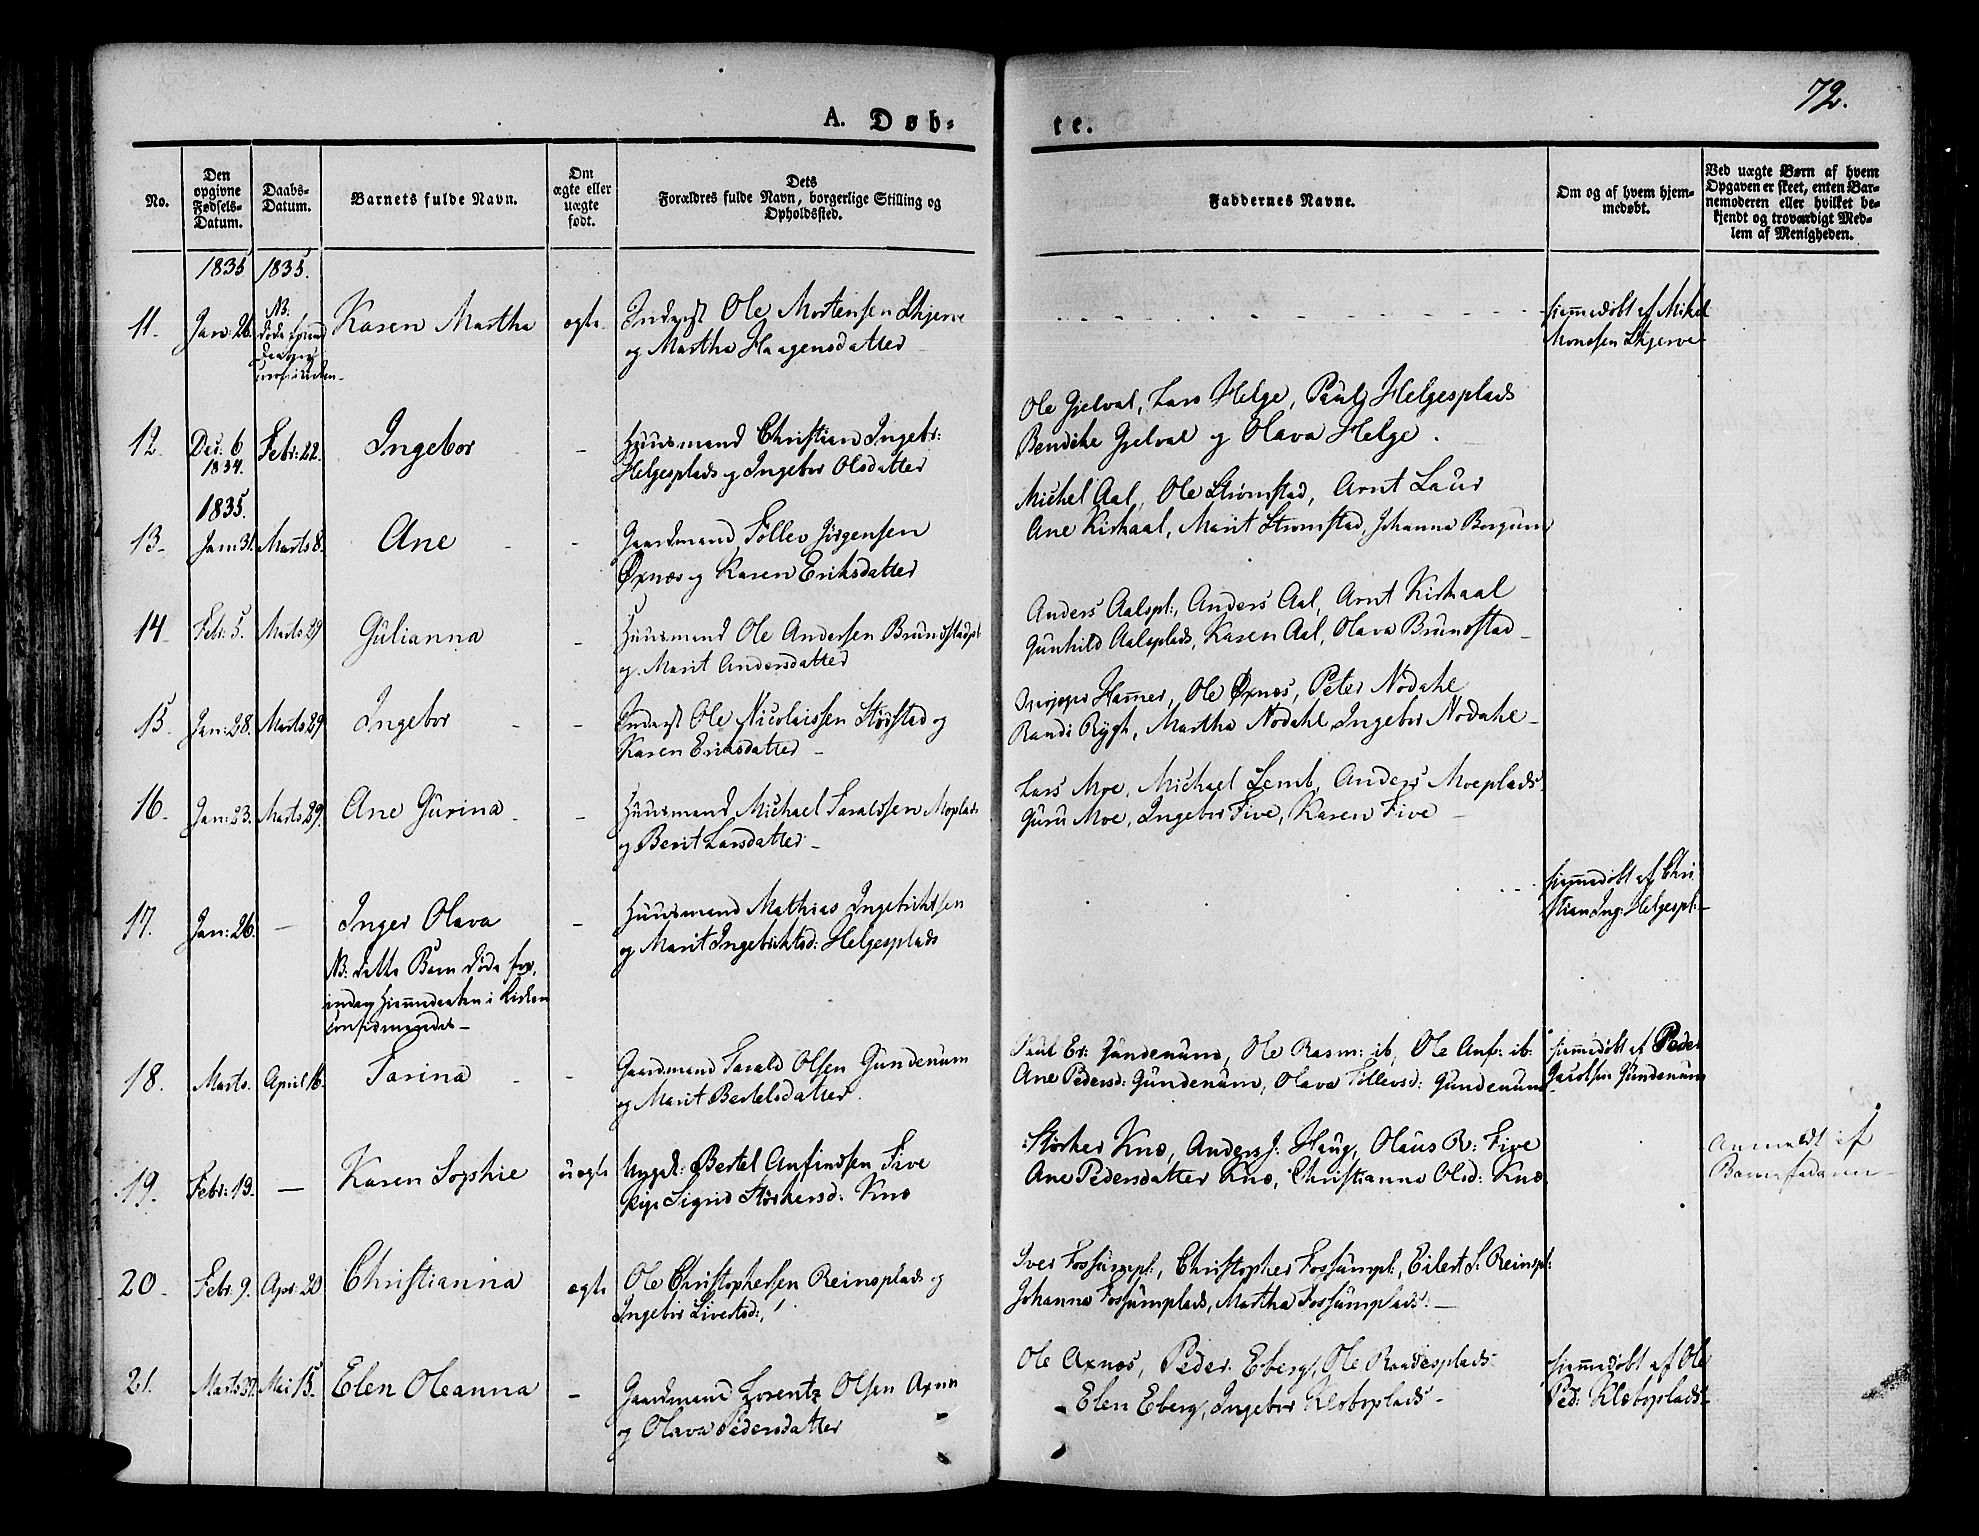 72.
A. Døb=
te.
No.
Den opgivne Fødsels-Datum.
Daabs-Datum.
Barnets fulde Navn.
Om ægte eller uægte født.
Dets
Forældres fulde Navn, borgerlige Stilling og
Opholdssted.
Faddernes Navne.
Om og af hvem hjem-
medøbt.
Ved uægte Børn af hvem
Opgaven er skeet, enten Bar-
nemoderen eller hvilket be-
kjendt og troværdigt Med-
lem af Menigheden.
1835 1835.
11. Jan: 26. NB. Karen Martha ægte. Inderst Ole Mortensen Skjerve
og Martha Haagensdatter
hjemmedøbt af Mikel
Monssen Skjerve
12. Dec: 6 1834. Febr: 22. Ingebor - Huusmand Christian Ingebr:
Helgesplads og Ingebor Olsdatter
Ole Gjelval, Lars Helge, Paul Helgesplads
Bendike Gjelval og Olava Helge.
1835.
13. Jan: 31. Marts 8. Ane - Gaardmand Tollev Jørgensen
Øxnæs og Karen Eriksdatter
Michel Aal, Ole Strømstad, Arnt Laur
Ane Kirkaal, Marit Strømstad, Johanna Borgum
14. Febr: 5. Marts 29 Gulianna - Huusmand Ole Andersen Brundstadpl:
og Marit Andersdatter
Anders Aalspl:, Anders Aal, Arnt Kirkaal
Gunhild Aalsplads, Karen Aal, Olava Brundstad
15. Jan: 28. Marts 29 Ingebor - Inderst Ole Nicolaissen Størstad og
Karen Eriksdatter
Hamer, Ole Øxnæs, Peter Nodahl
Randi Rygh, Martha Nodahl, Ingebor Nodahl
16. Jan: 23. Marts 29. Ane Gurina - Huusmand Michael Taraldsen Moplads
og Berit Larsdatter
Lars Moe, Michael Lemb, Anders Moeplads
Guru Moe, Ingebor Five, Karen Five
17. Jan: 26. - Inger Olava - Huusmand Mathias Ingebrichtsen
og Marit Ingebrichtsd: Helgesplads
NB: dette Barn døde før,
inden Hjemmedaaben i Kirken
confirmeredes
hjemmedøbt af Chri
stian Ing: Helgespl:
18. Marts. April 16. Tarina - Gaardmand Tarald Olsen Gundenum
og Marit Bertelsdatter.
Paul Er: Gundenum, Ole Rasm: ib, Ole Anf: ib:
Ane Pedersd: Gundenum, Olava Tollevsd: Gundenum
hjemmedøbt af Peder
Jacobsen Gundenum
19. Febr: 13. - Karen Sophie uægte Ungk: Bertel Anfindsen Five
Pige Sigrid Størkersd: Kno
Størker Kno, Anders J. Haug, Olaus R: Five
Ane Pedersdatter Kno, Christianna Olsd: Kno
Anmeldt af
Barnefaderen
20. Febr: 9. Apr: 20 Christianna ægte Ole Christophersen Reinsplads og
Ingebor Sivertsd:
Iver Fossumpl:, Christopher Fossumpl:, Eilert S: Reinspl:
Johanna Fossumplads, Martha Fossumplads.
21. Marts 27. Mai 15. Elen Oleanna - Gaardmand Lorentz Olsen Axnes
og Olava Pedersdatter
Ole Axnæs, Peder Eberg, Ole Raadesplads
Elen Eberg, Ingebor Klæboplads
hjemmedøbt af Ole
Ped: Klæboplads